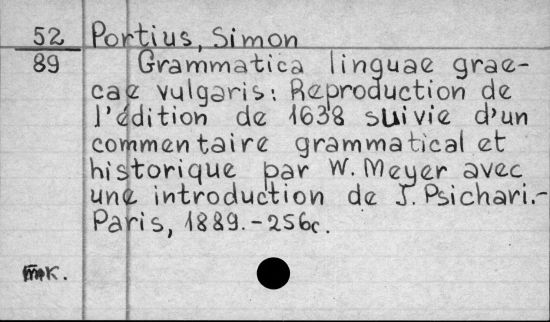 52 Portius, Simon
89 Grammatica linguae grae-
cae vulgaris: Reproduction de
l'édition de 1638 suivie d'un
commentaire grammatical et
historique par W. Meyer avec
une introduction de J. Psichari.-
Paris, 1889.-256c.